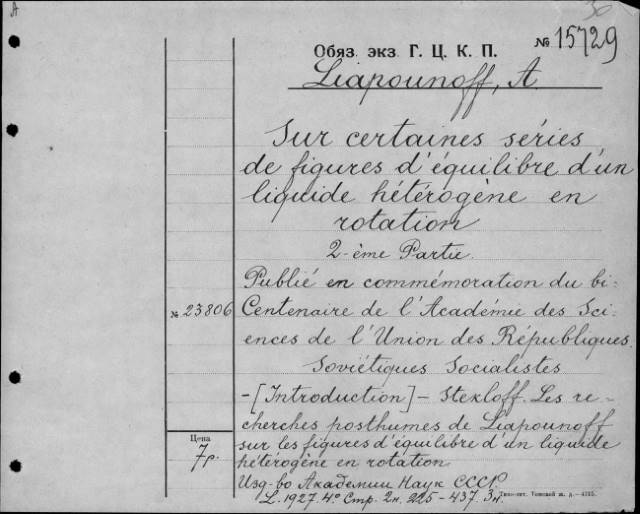 A
30
Обяз. экз. Г. Ц. К. П. № 15729
Liapounoff, A.
Sur certaines séries
de figures d'équilibre d'un
liquide hétérogène en
rotation
2-ème Partie.
Publié en commémoration du bi-
№ 23806 Centenaire de l'Académie des Sci-
ences de l'Union des Républiques
Soviétiques Socialistes
-[Introduction]- Stekloff. Les re-
cherches posthumes de Liapounoff
Цена
7 р.
sur les figures d'équilibre d'un liquide
hétérogène en rotation
Изд-во Академии Наук СССР.
L. 1927. 4° Стр. 2н. 225-437. 3н.
Типо-лит. ж. д.